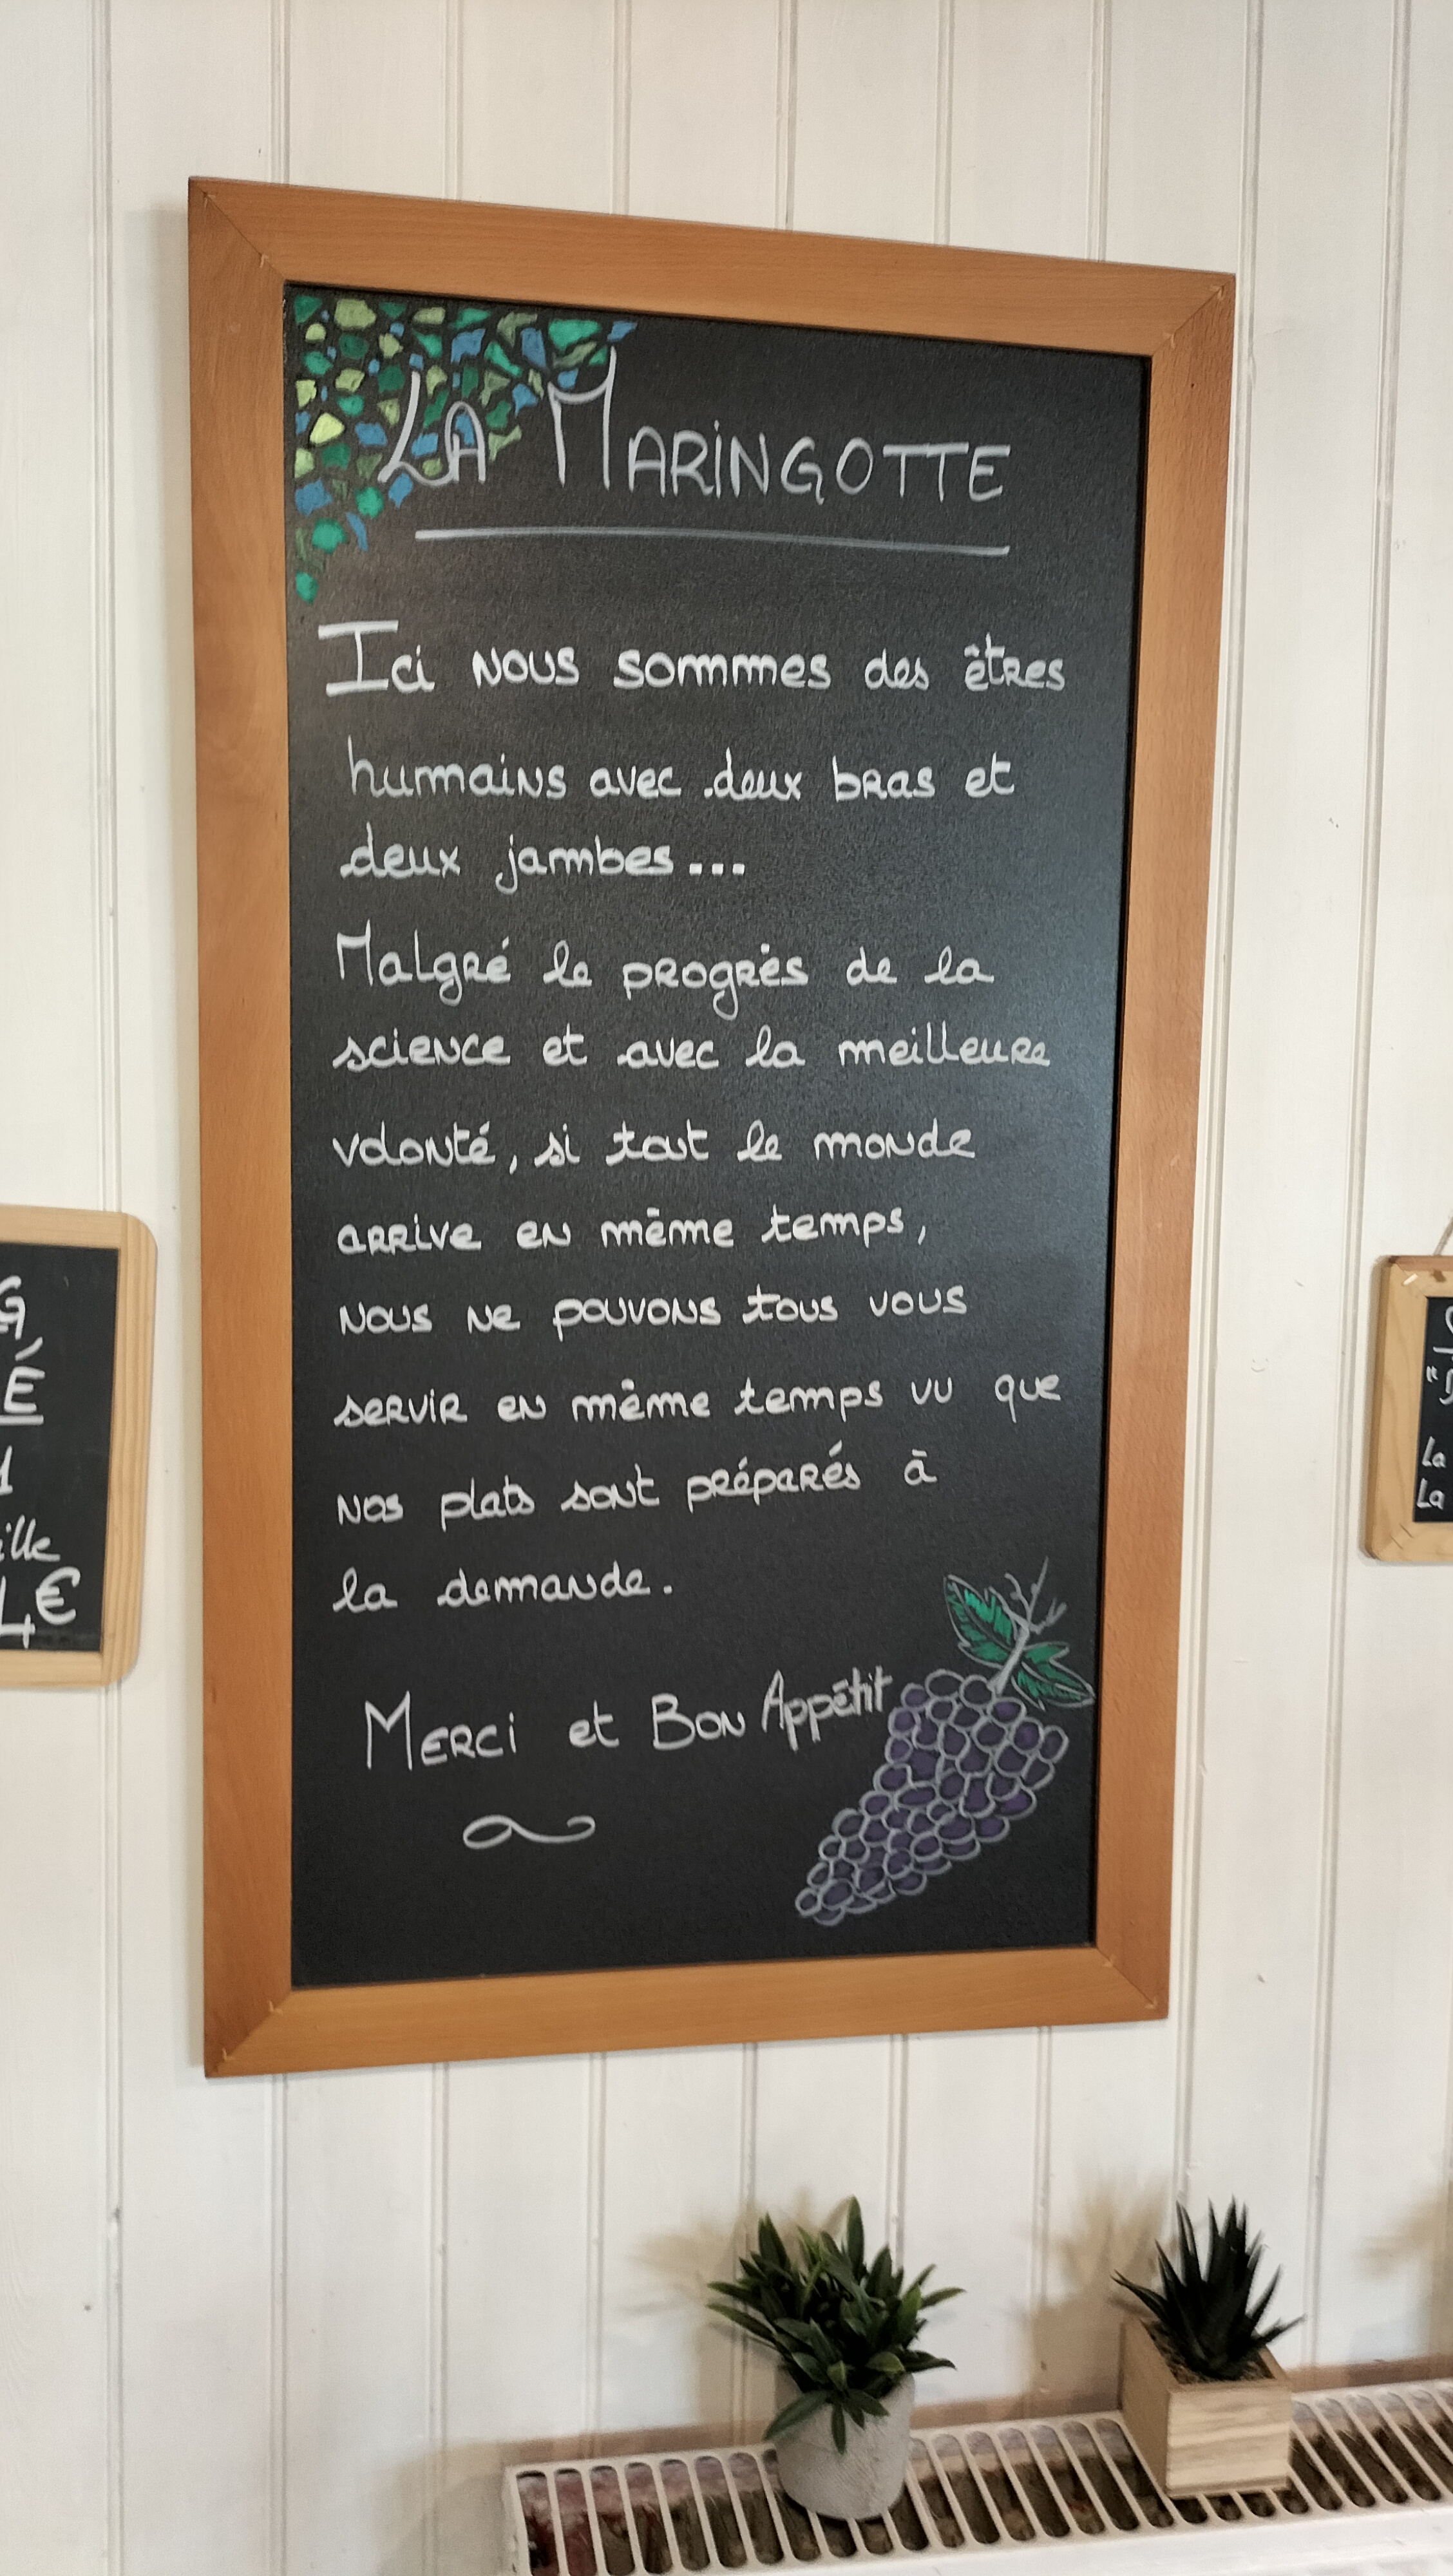 LA MARINGOTTE
Ici nous sommes des êtres
humains avec deux bras et
deux jambes...
Malgré le progrès de la
science et avec la meilleure
volonté, si tout le monde
arrive en même temps,
nous ne pouvons tous vous
servir en même temps vu que
nos plats sont préparés à
la demande.
Merci et Bon Appétit
G
É
ille
4€
La
La